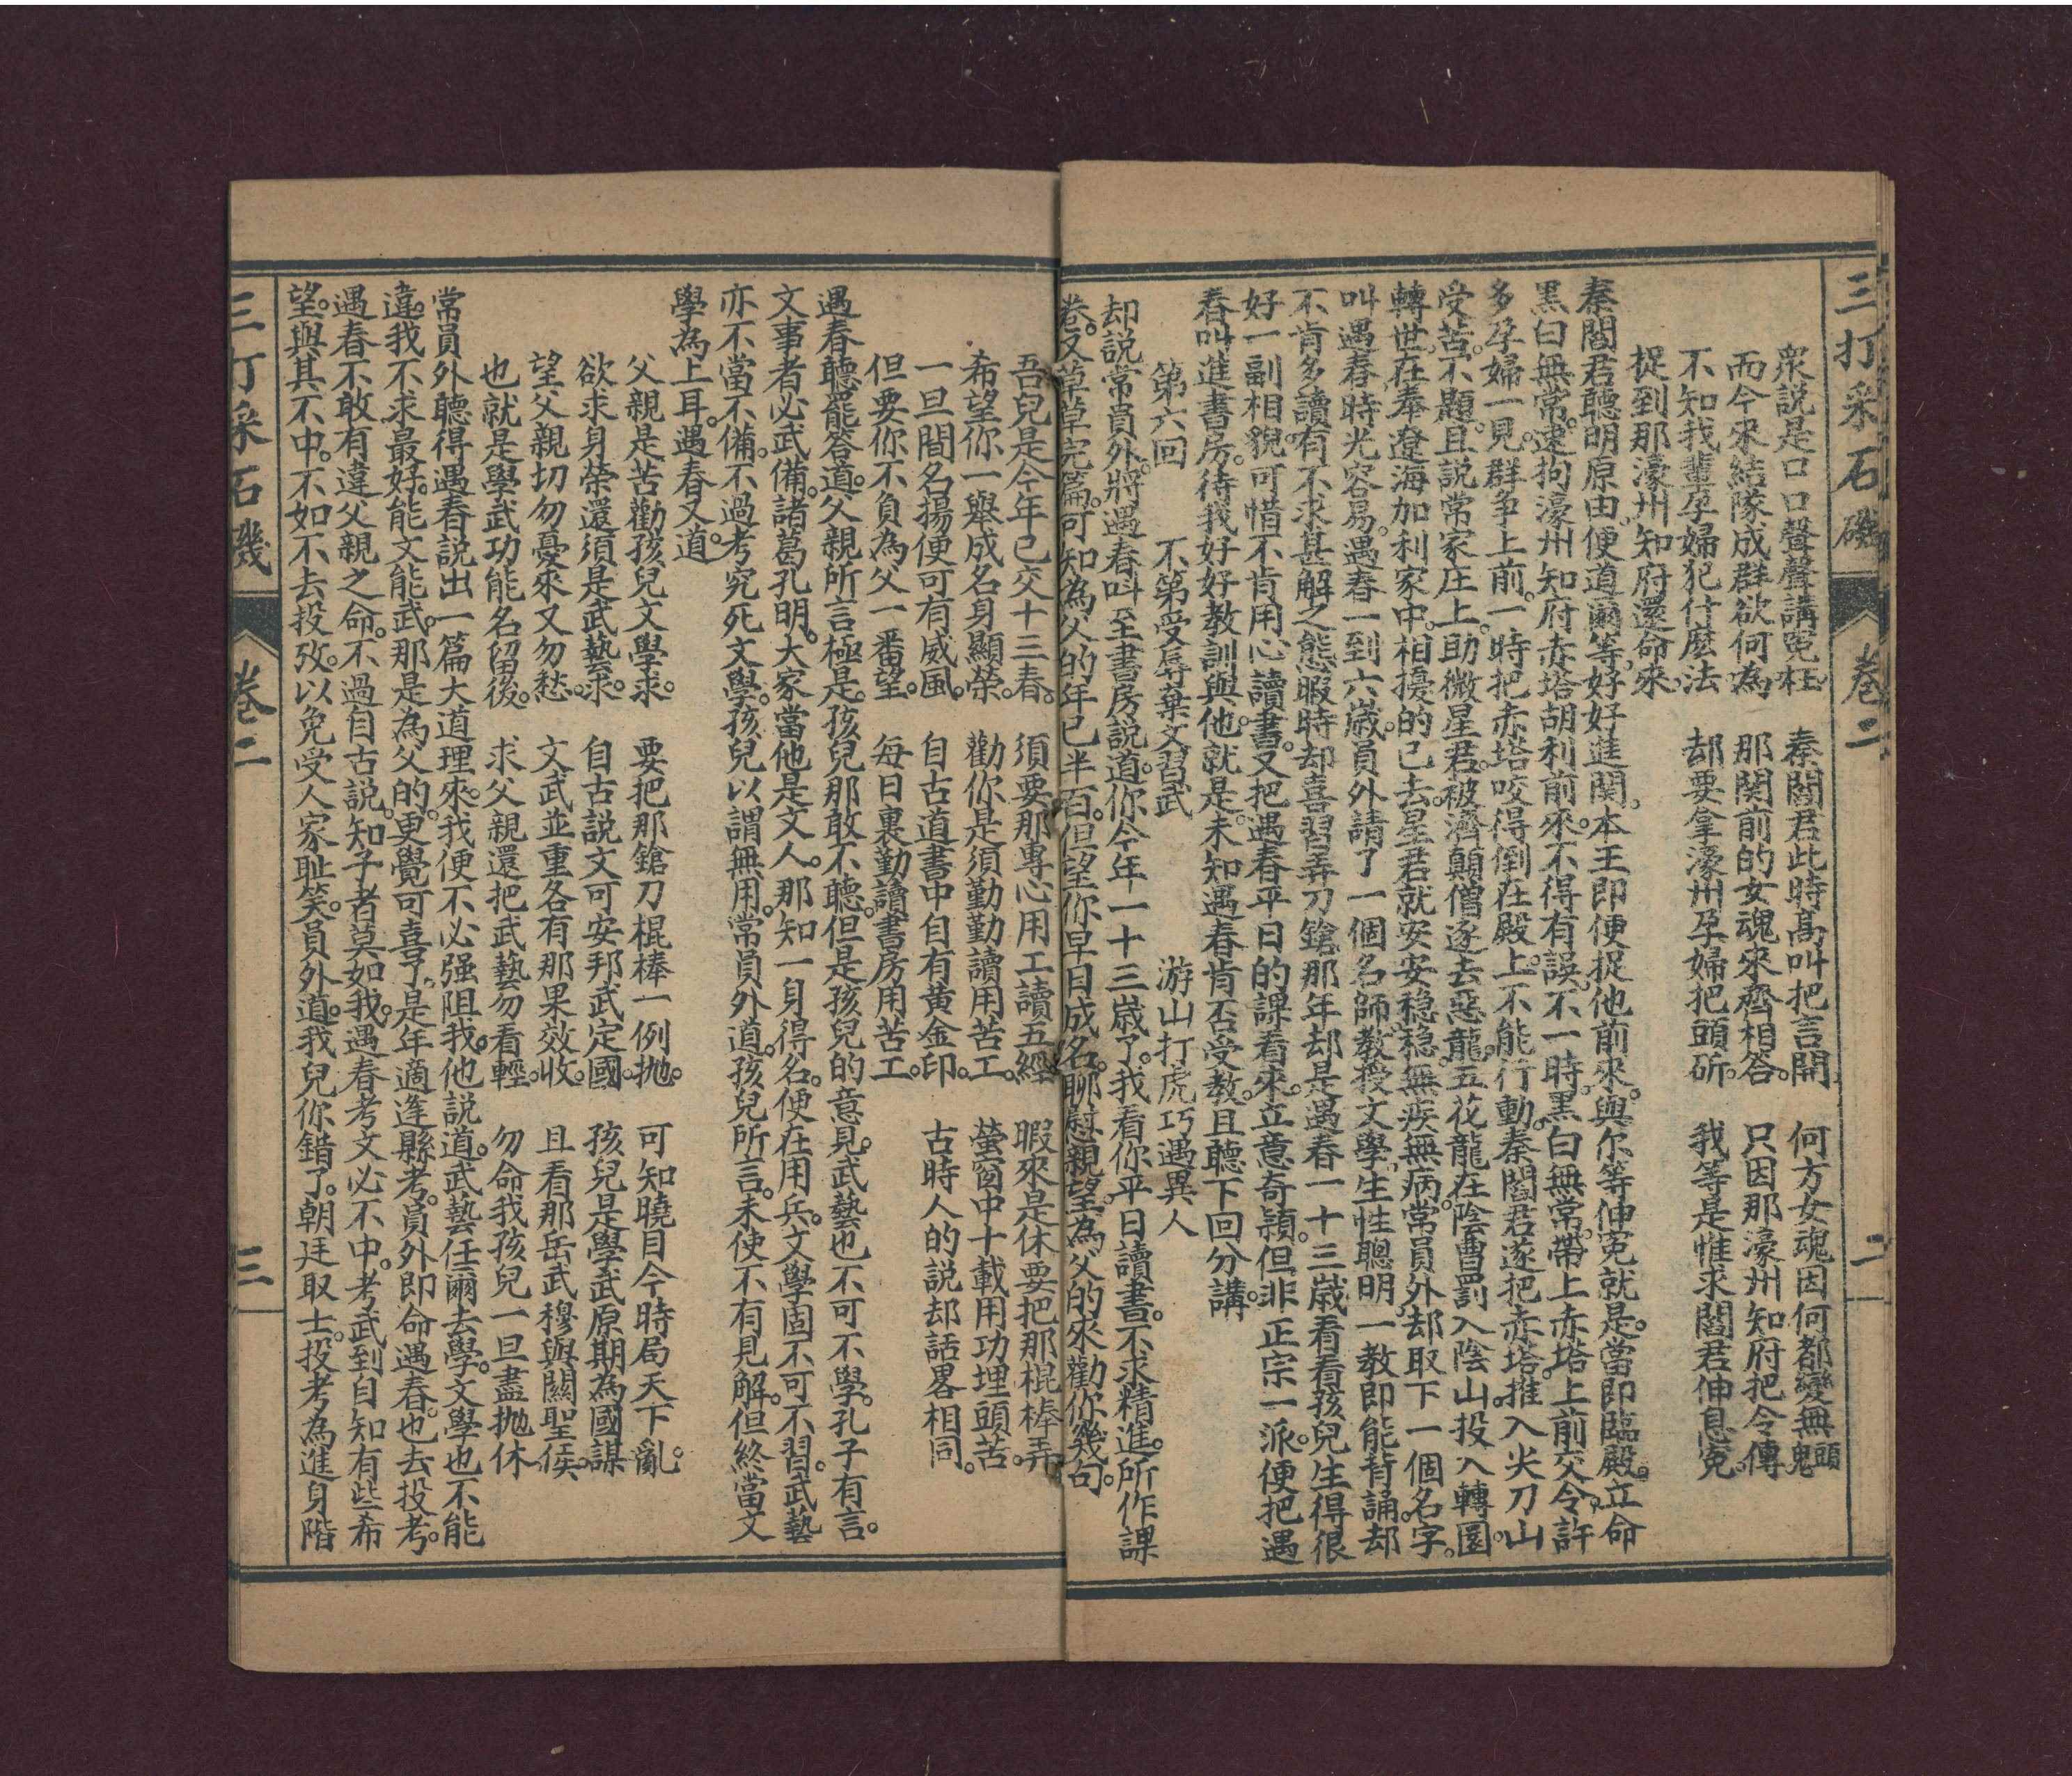 三打采石磯 卷二 二
衆説是口口聲聲講冤枉 秦閻君此時髙叫把言開 何方女魂因何都變無頭鬼
而今來結隊成群欲何為 那関前的女魂來齊相答 只因那濠州知府把令傳
不知我輩孕婦犯什麽法 却要拿濠州孕婦把頭斫 我等是惟求閻君伸息冤
捉到那濠州知府還命來
秦閻君聽明原由便道爾等好好進関本王即便捉他前來與尔等伸冤就是當即臨殿立命
黑白無常速拘濠州知府赤塔胡利前來不得有誤不一時黑白無常帶上赤塔上前交令許
多孕婦一見群争上前一時把赤塔咬得倒在殿上不能行動秦閻君遂把赤塔推入尖刀山
受苦不題且説常家庄上助微星君被濟顛僧逐去惡龍五花龍在陰曹罰入陰山投入轉圜
轉世在奉遼海加利家中相擾的已去星君就安安稳稳無疾無病常員外却取下一個名字
叫遇春時光容易遇春一到六歲員外請了一個名師教授文學生性聰明一教即能背誦却
不肯多讀有不求甚解之態暇時却喜習弄刀鎗那年却是遇春一十三歲看看孩兒生得很
好一副相貌可惜不肯用心讀書又把遇春平日的課看來立意奇頴但非正宗一派便把遇
春叫進書房待我好好教訓與他就是未知遇春肯否受教且聽下回分講
第六回 不第受辱棄文習武 游山打虎巧遇異人
却説常員外將遇春呌至書房説道你今年一十三歲了我看你平日讀書不求精進所作課
卷又草草完篇可知為父的年已半百但望你早日成名聊慰親望為父的來勸你幾句
吾兒是今年已交十三春 須要那專心用工讀五經 暇來是休要把那棍棒弄
希望你一舉成名身顯榮 勸你是須勤勤讀用苦工 螢窗中十載用功埋頭苦
一旦間名揚便可有威風 自古道書中自有黄金印 古時人的説却話畧相同
但要你不負為父一番望 每日裏勤讀書房用苦工
遇春聽罷答道父親所言極是孩兒那敢不聽但是孩兒的意見武藝也不可不學孔子有言
文事者必武備諸葛孔明大家當他是文人那知一身得名便在用兵文學固不可不習武藝
亦不當不備不過考究死文學孩兒以謂無用常員外道孩兒所言未使不有見解但終當文
學為上耳遇春又道
父親是苦勸孩兒文學求 要把那鎗刀棍棒一例拋 可知曉目今時局天下亂
欲求身榮還須是武藝求 自古説文可安邦武定國 孩兒是學武原期為國謀
望父親切勿憂來又勿愁 文武並重各有那果效收 且看那岳武穆與關聖侯
也就是學武功能名留後 求父親還把武藝勿看輕 勿命我孩兒一旦盡拋休
常員外聽得遇春説出一篇大道理來我便不必强阻我他説道武藝任爾去學文學也不能
違我不求最好能文能武那是為父的更覺可喜了是年適逢縣考員外即命遇春也去投考
遇春不敢有違父親之命不過自古説知子者莫如我遇春考文必不中考武到自知有些希
望與其不中不如不去投攷以免受人家耻笑員外道我兒你錯了朝廷取士投考為進身階
三打采石磯 卷二 三